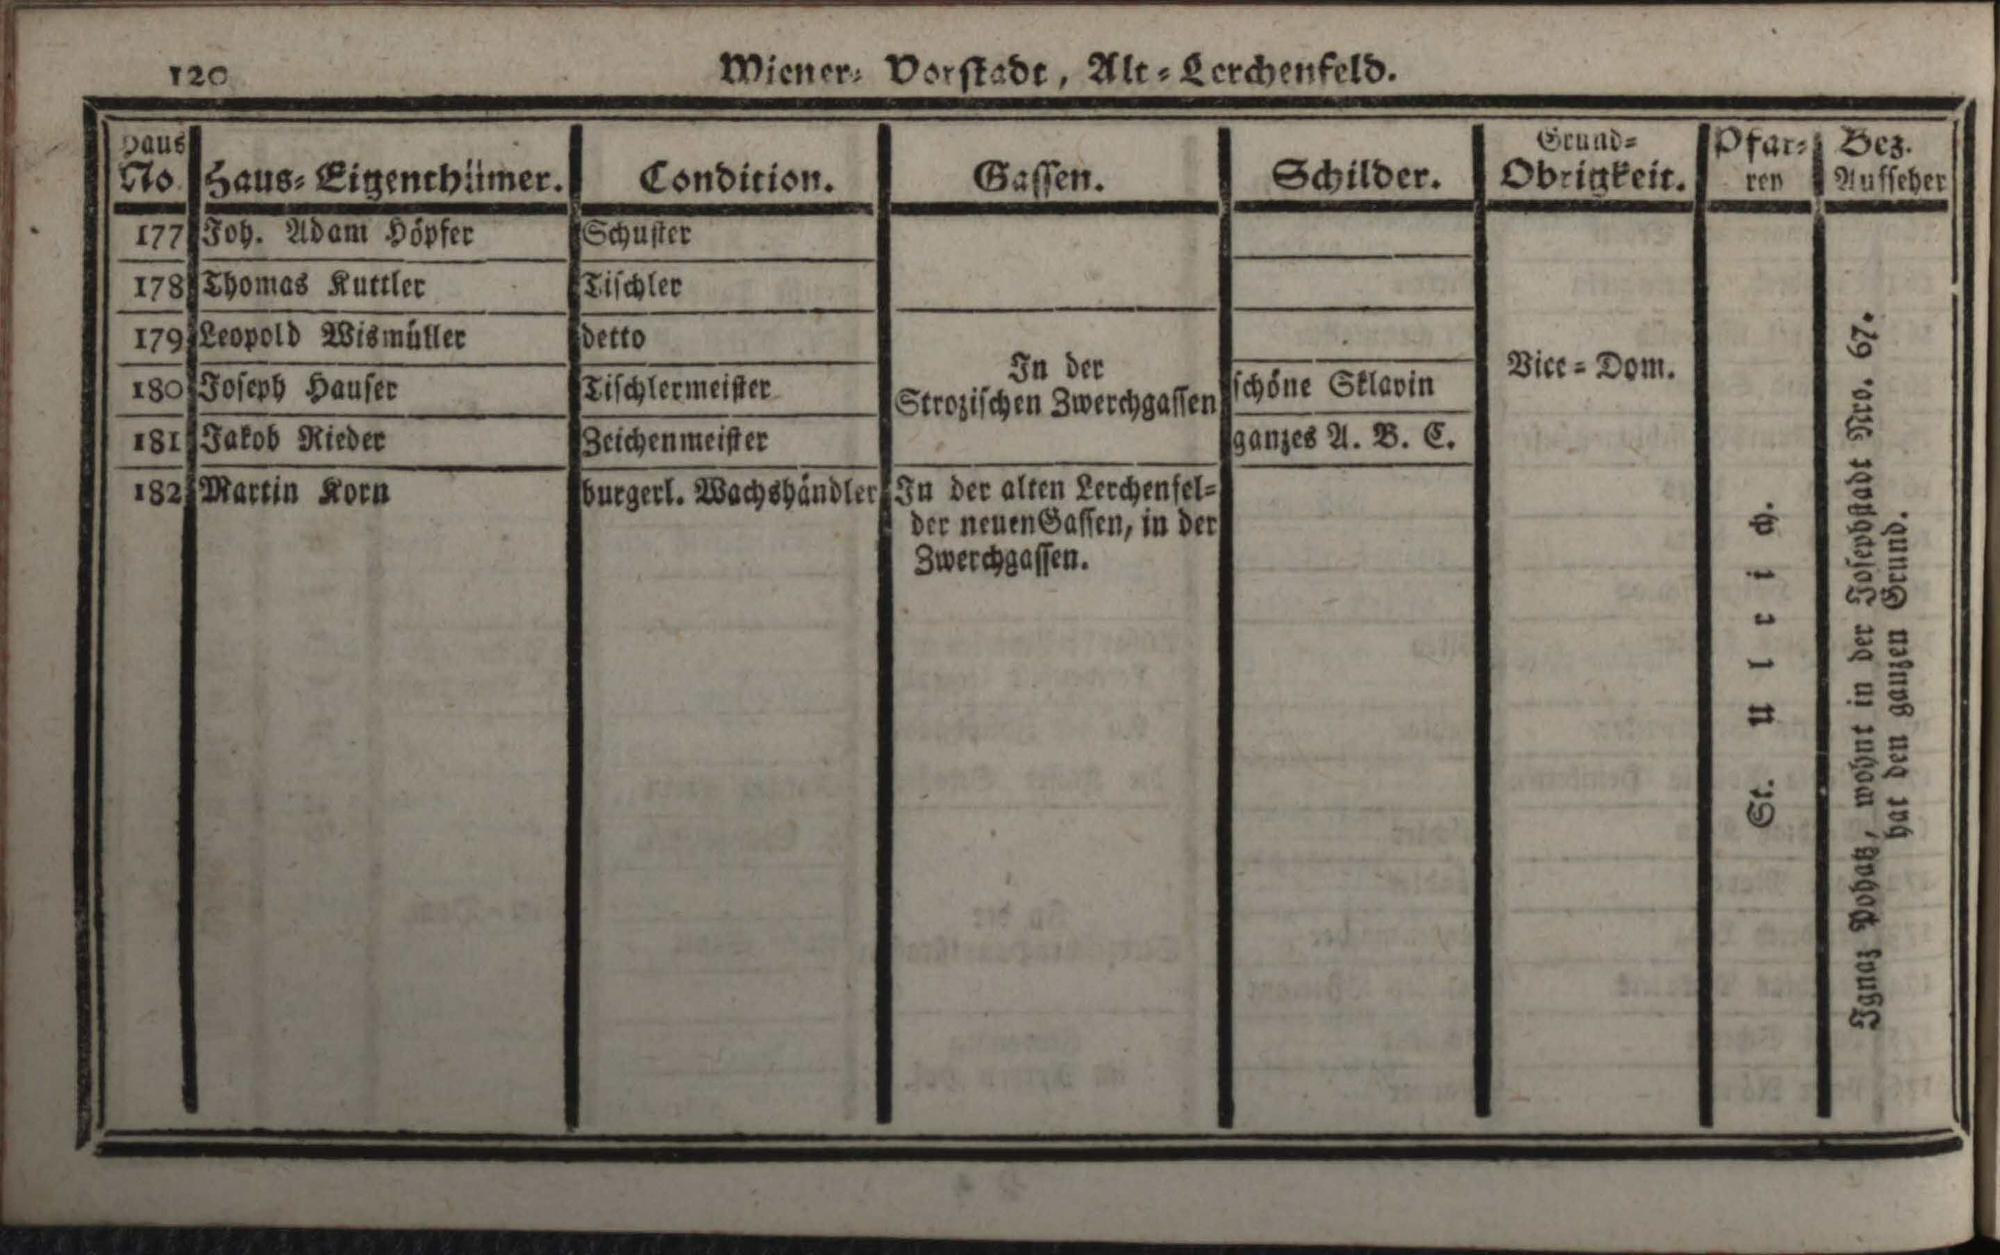 120
Wiener- Vorstadt, Alt-Lerchenfeld.
Haus No | Haus-Eigenthümer. | Condition. | Gassen. | Schilder. | Grund-Obrigkeit. | Pfarren | Bez. Aufseher
177 Joh. Adam Höpfer Schuster
178 Thomas Kuttler Tischler
179 Leopold Wismüller detto
180 Joseph Hauser Tischlermeister schöne Sklavin
181 Jakob Rieder Zeichenmeister ganzes A. B. C.
In der
Strozischen Zwerchgassen
182 Martin Korn burgerl. Wachshändler In der alten Lerchenfel-
der neuen Gassen, in der
Zwerchgassen.
Vice-Dom.
St. Ulrich.
Ignaz Pohatz, wohnt in der Josephstadt Nro. 67.
hat den ganzen Grund.